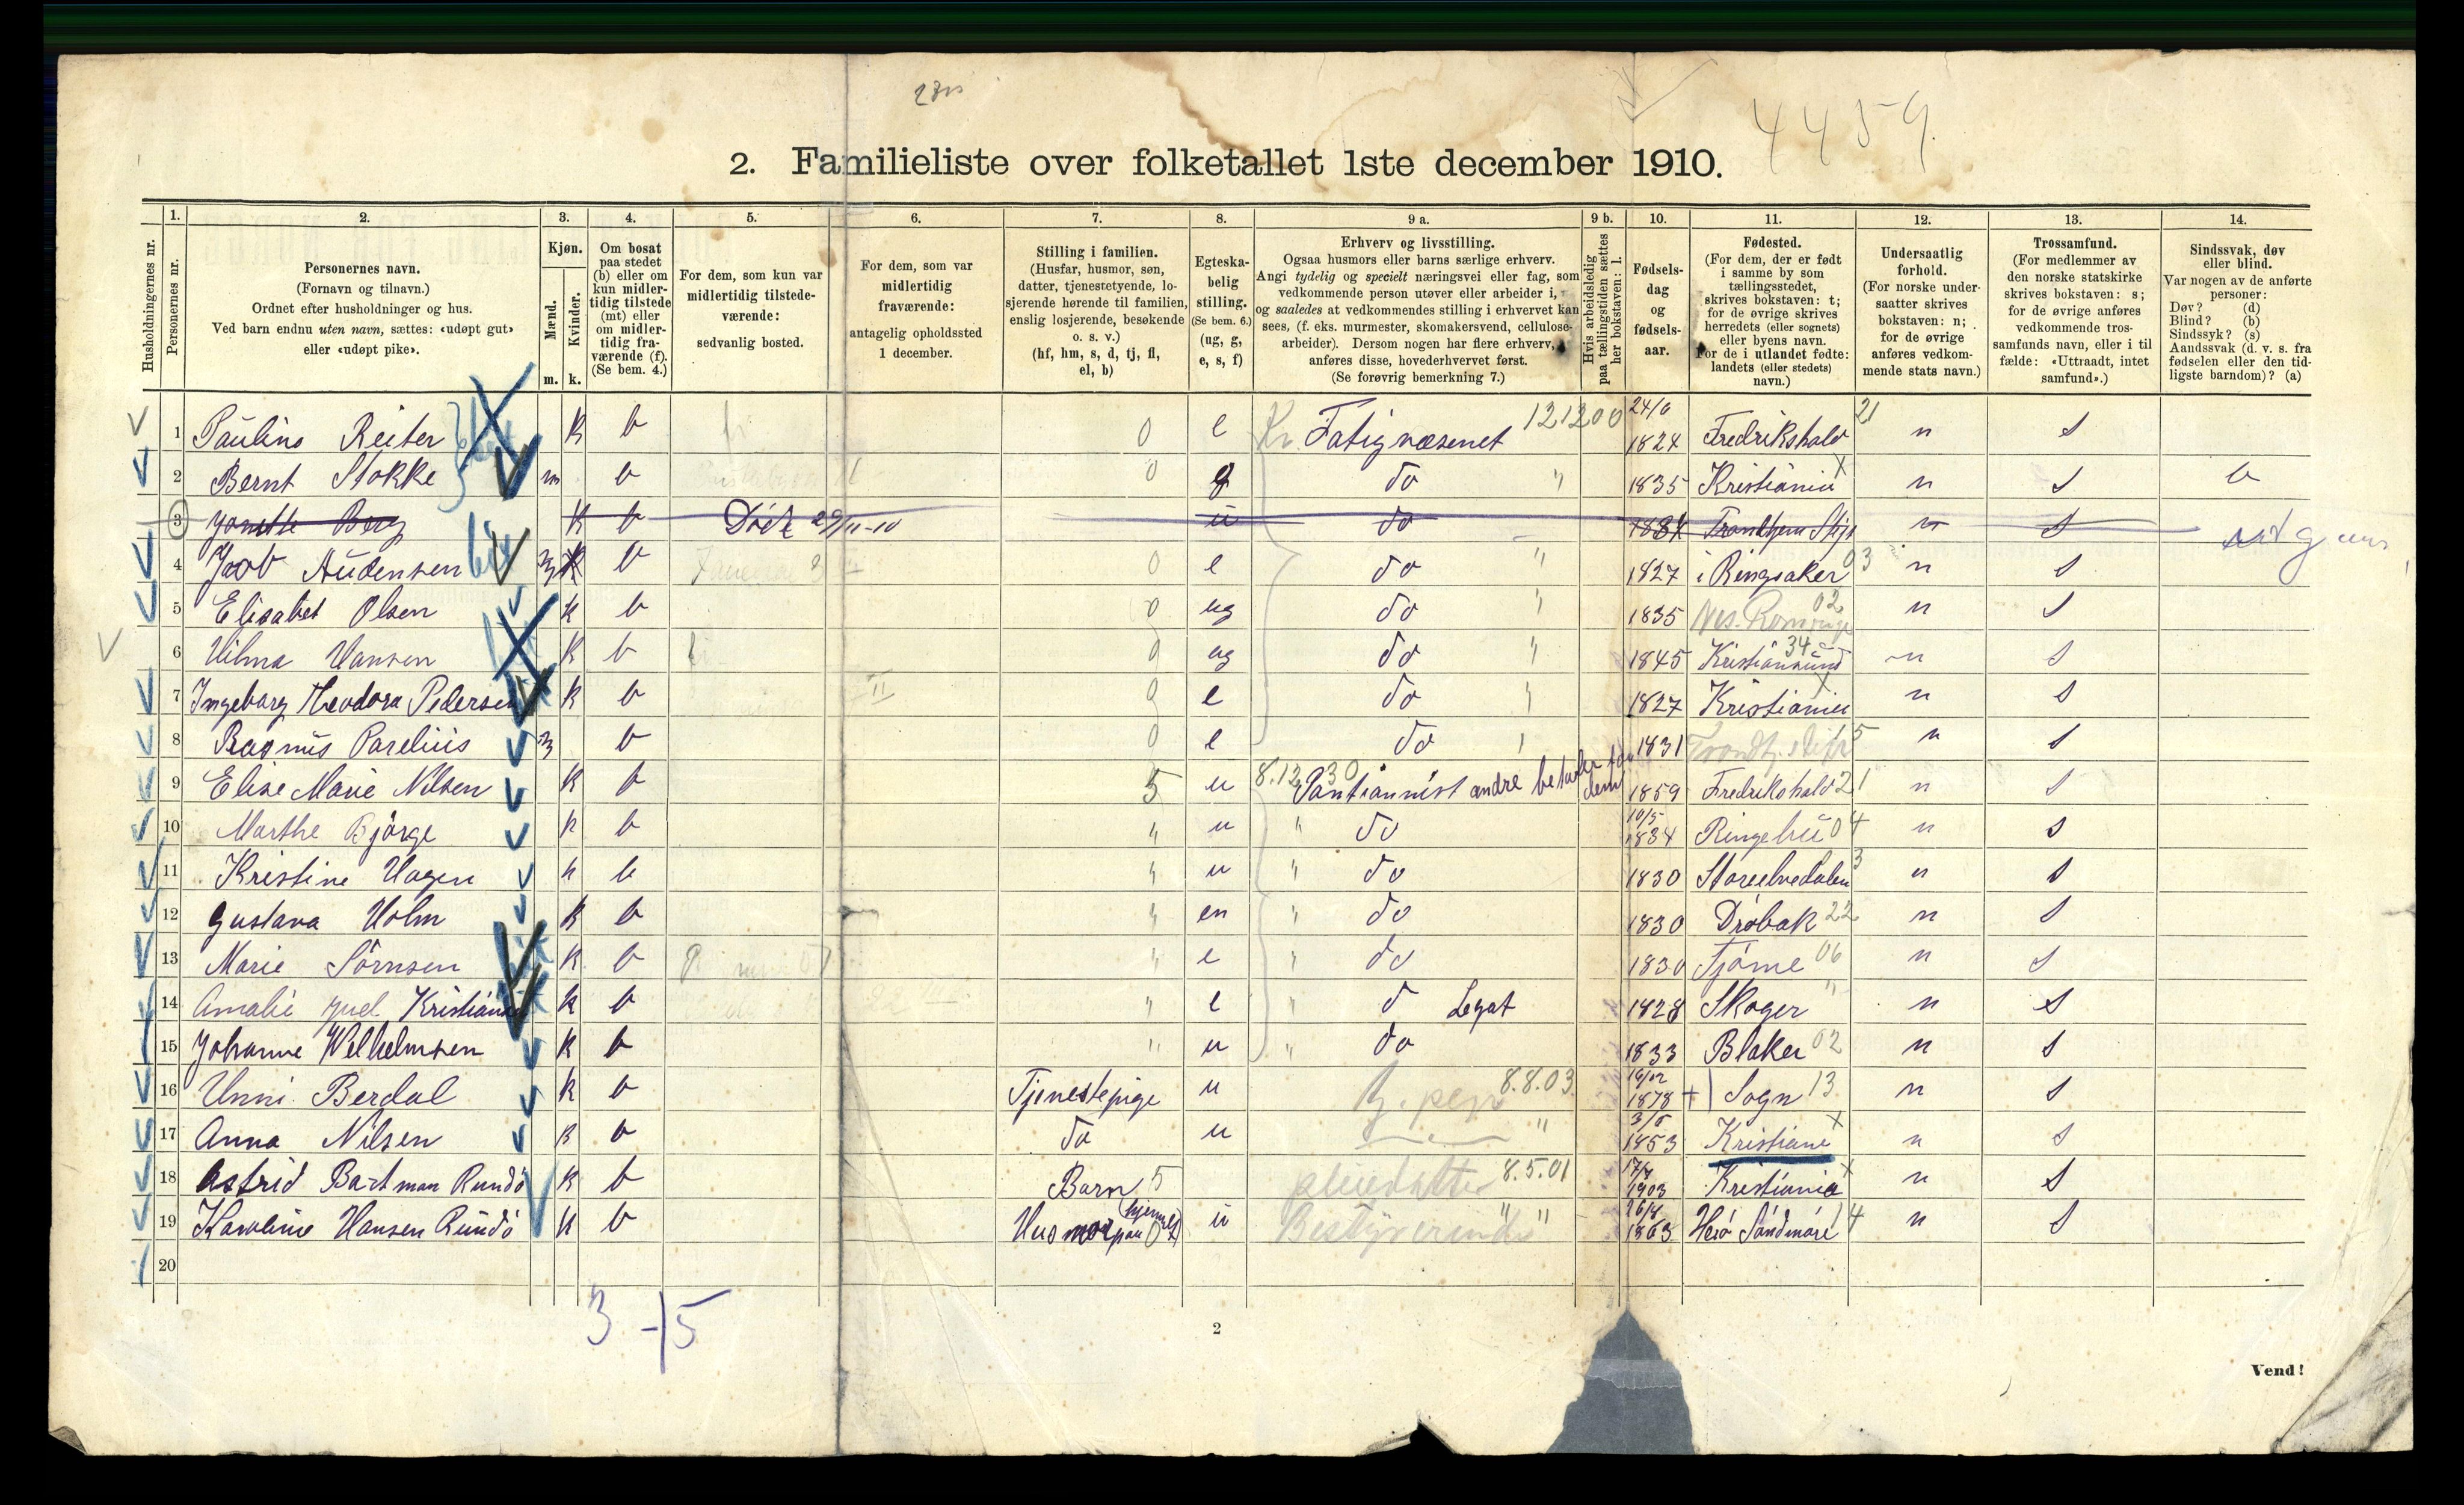 4459.
2. Familieliste over folketallet 1ste december 1910.
1. 2. 3. 4. 5. 6. 7. 8. 9 a. 9 b. 10. 11. 12. 13. 14.
Husholdningernes nr.
Personernes nr.
Personernes navn.
(Fornavn og tilnavn.)
Ordnet efter husholdninger og hus.
Ved barn endnu uten navn, sættes: «udøpt gut»
eller «udøpt pike».
Kjøn.
Mænd.
Kvinder.
m. k.
Om bosat
paa stedet
(b) eller om
kun midler-
tidig tilstede
(mt) eller
om midler-
tidig fra-
værende (f).
(Se bem. 4.)
For dem, som kun var
midlertidig tilstede-
værende:
sedvanlig bosted.
For dem, som var
midlertidig
fraværende:
antagelig opholdssted
1 december.
Stilling i familien.
(Husfar, husmor, søn,
datter, tjenestetyende, lo-
sjerende hørende til familien,
enslig losjerende, besøkende
o. s. v.)
(hf, hm, s, d, tj, fl,
el, b)
Egteska-
belig
stilling.
(Se bem. 6.)
(ug, g,
e, s, f)
Erhverv og livsstilling.
Ogsaa husmors eller barns særlige erhverv.
Angi tydelig og specielt næringsvei eller fag, som
vedkommende person utøver eller arbeider i,
og saaledes at vedkommendes stilling i erhvervet kan
sees, (f. eks. murmester, skomakersvend, cellulose-
arbeider). Dersom nogen har flere erhverv,
anføres disse, hovederhvervet først.
(Se forøvrig bemerkning 7.)
Hvis arbeidsledig
paa tællingstiden sættes
her bokstaven: l.
Fødsels-
dag
og
fødsels-
aar.
Fødested.
(For dem, der er født
i samme by som
tællingsstedet,
skrives bokstaven: t;
for de øvrige skrives
herredets (eller sognets)
eller byens navn.
For de i utlandet fødte:
landets (eller stedets)
navn.)
Undersaatlig
forhold.
(For norske under-
saatter skrives
bokstaven: n;
for de øvrige
anføres vedkom-
mende stats navn.)
Trossamfund.
(For medlemmer av
den norske statskirke
skrives bokstaven: s;
for de øvrige anføres
vedkommende tros-
samfunds navn, eller i til
fælde: «Uttraadt, intet
samfund».)
Sindssvak, døv
eller blind.
Var nogen av de anførte
personer:
Døv? (d)
Blind? (b)
Sindssyk? (s)
Aandssvak (d. v. s. fra
fødselen eller den tid-
ligste barndom)? (a)
1 Pauline Reiter K b 0 e Fatigvæsenet 121200 24/6 1824 Fredrikshald 21 n s
2 Bernt Stokke m b 0 g do " 1835 Kristiania n s b
3 Berg K b Död 29/11-10 u do n s
4 Audensen b 0 e do " 1827 i Ringsaker 03 n s
5 Elisabet Olsen K b 0 ug do " 1835 Nes. 02 n s
6 Hilma Hansen K b 0 ug do " 1845 Kristiansund 34 n s
7 Ingeborg Theodora Pedersen K b 0 e do " 1827 Kristiania n s
8 Rasmus Parelius b 0 e do " 1831 n s
9 Elise Marie Nilsen K b 5 u 8.12 30 Pantiannist andre betaler for dem 1859 Fredrikshald 21 n s
10 Marthe Bjørge K b " u " do 10/5 1834 Ringebu 04 n s
11 Kristine Hagen K b " u " do 1830 Storelvedalen 3 n s
12 Gustava Holm K b " en " do 1830 Drøbak 22 n s
13 Marie Sörnsen K b " e " do 1830 Tjöme 06 n s
14 Amalie Juel Kristiansen K b " e " d Legat 1828 Skoger " n s
15 Johanne Wilhelmsen K b " u " do 1833 Blaker 02 n s
16 Unni Berdal K b Tjenestepige u 8.8.03 1878 Sogn 13 n s
17 Anna Nilsen K b do u " 1853 Kristiania n s
18 Astrid Bartman Rundö K b Barn 5 pleiedatter 8.5.01 1903 Kristiania n s
19 Karoline Hansen Rundö K b Husmor paa hjemmet 0 u Bestyrerinde " " 26/8 1863 Herø Söndmöre 14 n s
20
3 - 15
2
Vend!